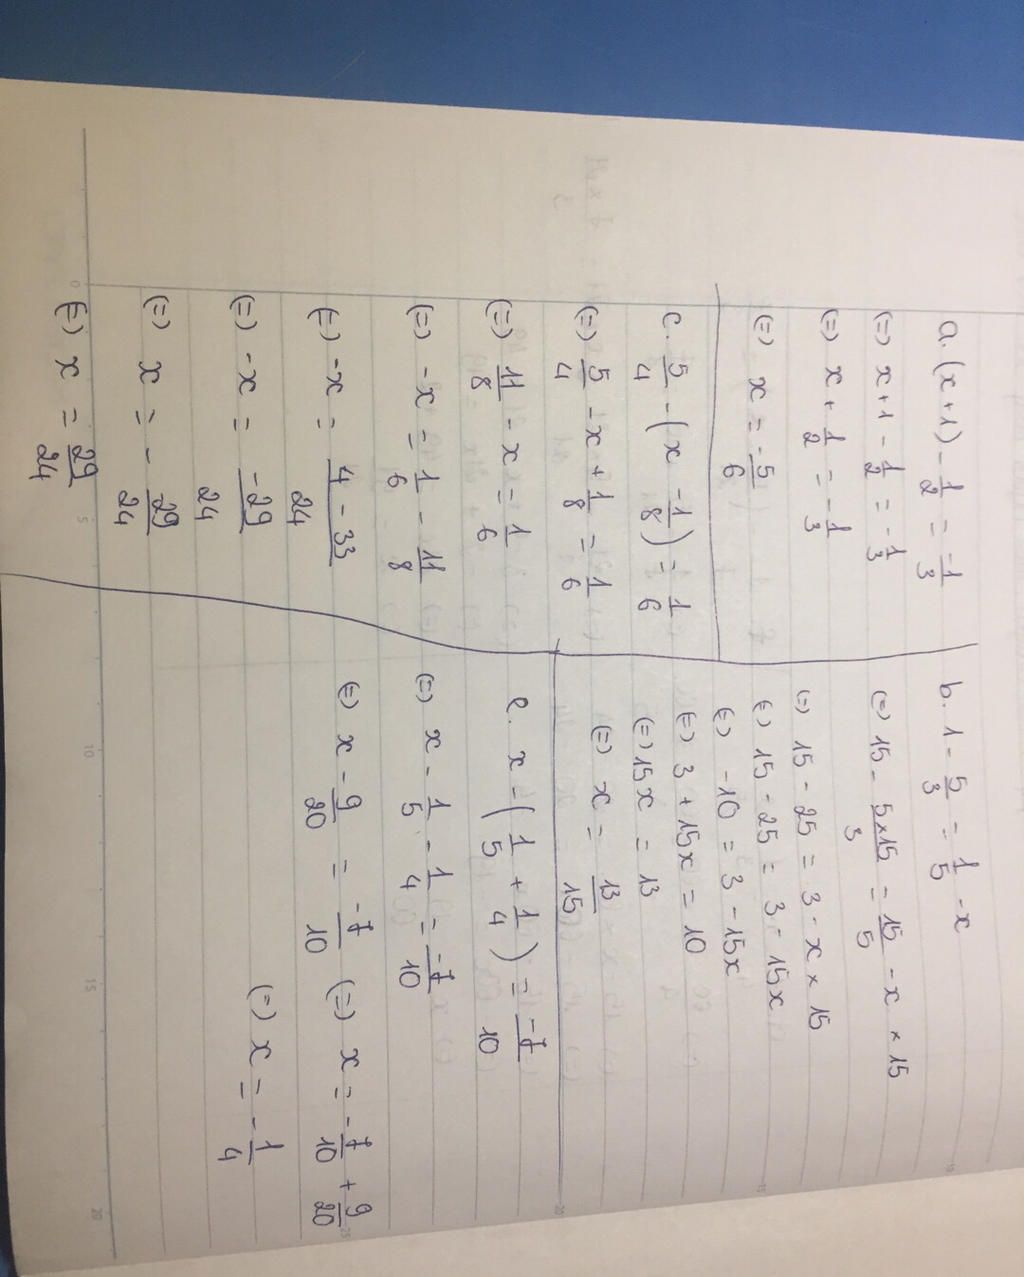 a. (x+1) - 1/2 = -1/3
(=) x+1 - 1/2 = -1/3
(=) x + 1/2 = -1/3
(=) x = -5/6
c. 5/4 - (x - 1/8) = 1/6
(=) 5/4 - x + 1/8 = 1/6
(=) 11/8 - x = 1/6
(=) -x = 1/6 - 11/8
(=) -x = 4 - 33/24
(=) -x = -29/24
(=) x = - -29/24
(=) x = 29/24
b. 1 - 5/3 = 1/5 - x
(=) 15 - 5×15/3 = 15/5 - x × 15
(=) 15 - 25 = 3 - x × 15
(=) 15 - 25 = 3 - 15x
(=) -10 = 3 - 15x
(=) 3 + 15x = 10
(=) 15x = 13
(=) x = 13/15
e. x - (1/5 + 1/4) = -7/10
(=) x - 1/5 - 1/4 = -7/10
(=) x - 9/20 = -7/10 (=) x = -7/10 + 9/20
(=) x = -1/4